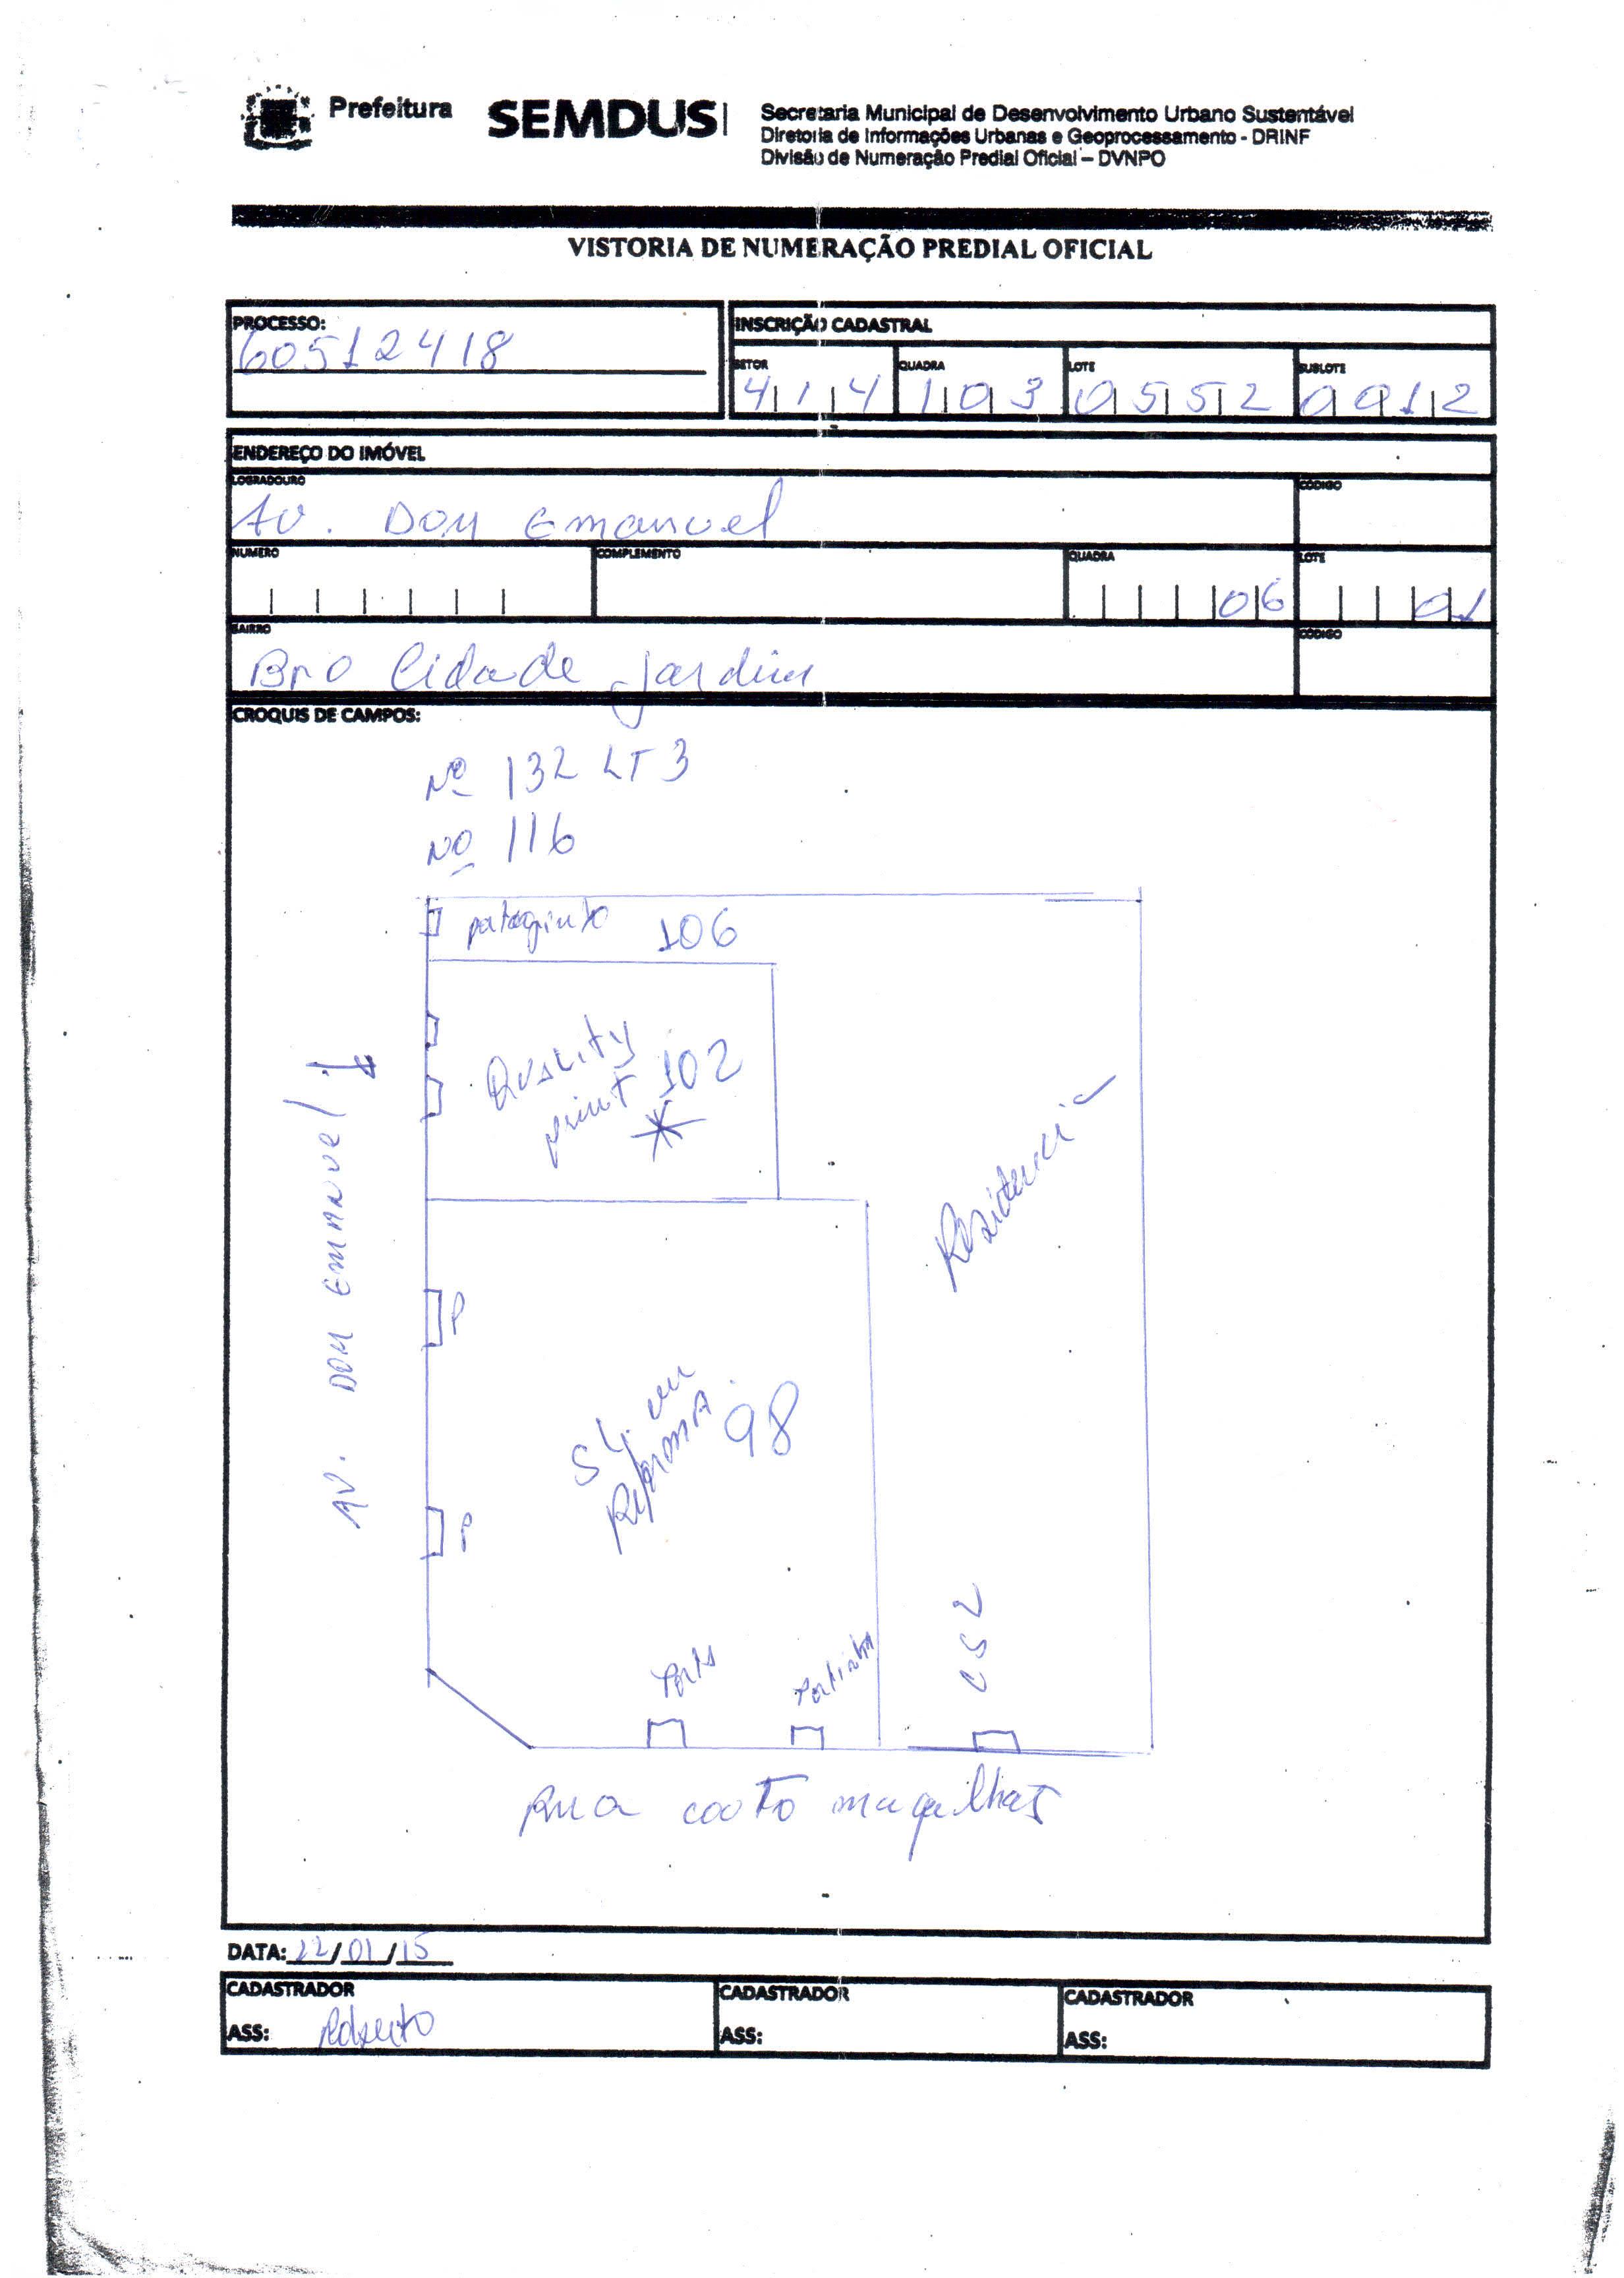 Prefeitura
SEMDUS
Secretaria Municipal de Desenvolvimento Urbano Sustentável
Diretoria de Informações Urbanas e Geoprocessamento - DRINF
Divisão de Numeração Predial Oficial – DVNPO
VISTORIA DE NUMERAÇÃO PREDIAL OFICIAL
PROCESSO:
60512418
INSCRIÇÃO CADASTRAL
SETOR QUADRA LOTE SUBLOTE
414 103 0552 0012
ENDEREÇO DO IMÓVEL
LOGRADOURO CÓDIGO
Av. Dom Emanuel
NUMERO COMPLEMENTO QUADRA LOTE
06 01
BAIRRO CÓDIGO
Bro Cidade Jardim
CROQUIS DE CAMPOS:
Nº 132 LT 3
Nº 116
106
Quality
print 102
*
Residencia
AV. DOM EMANUEL
P
SL em
Reforma. 98
P
Porta
Portinha
CS 2
Rua couto magalhas
DATA: 22/01/15
CADASTRADOR CADASTRADOR CADASTRADOR
ASS: Roberto ASS: ASS: